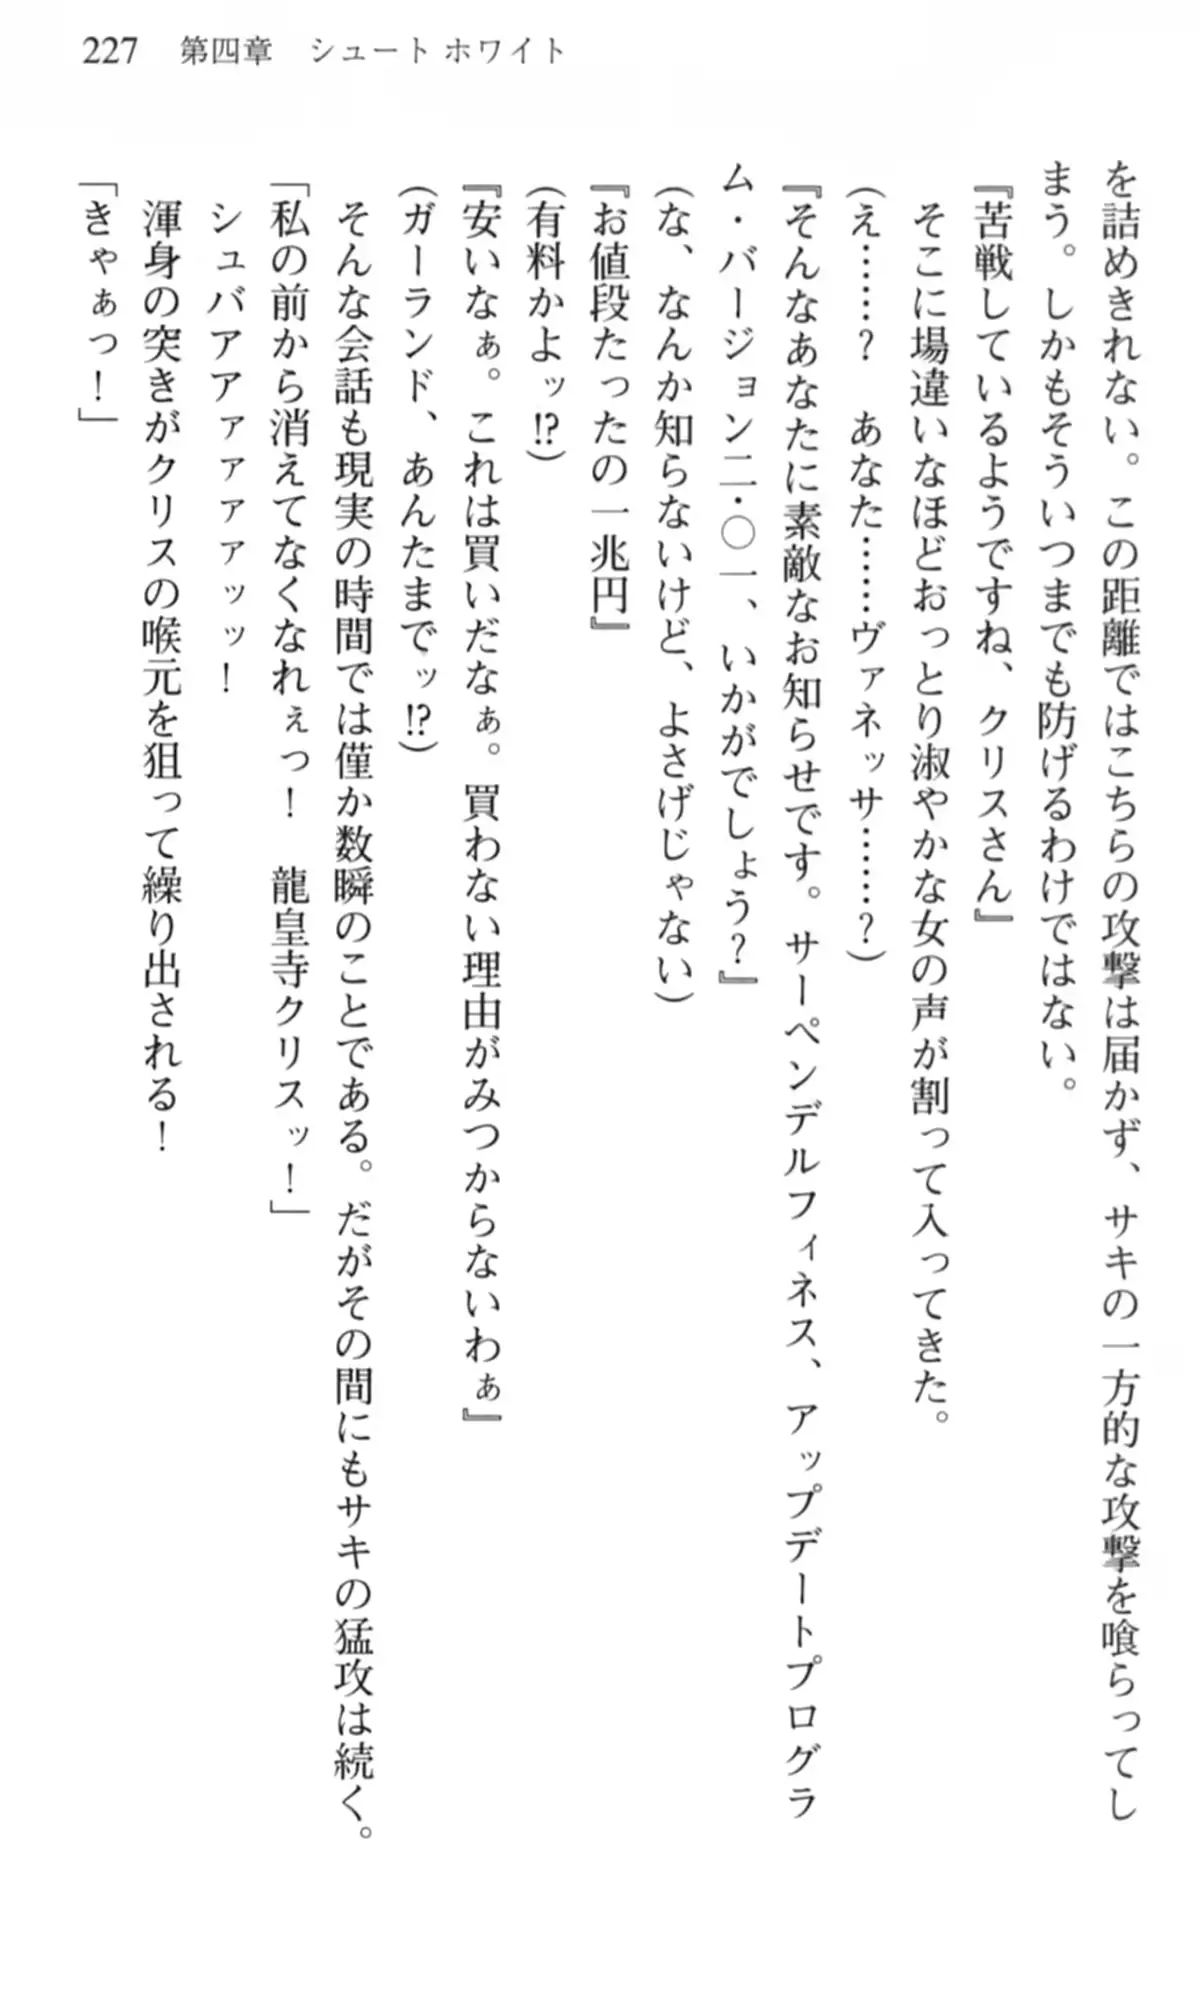 227　第四章　シュート ホワイト
を詰めきれない。この距離ではこちらの攻撃は届かず、サキの一方的な攻撃を喰らってし
まう。しかもそういつまでも防げるわけではない。
『苦戦しているようですね、クリスさん』
　そこに場違いなほどおっとり淑やかな女の声が割って入ってきた。
（え……？　あなた……ヴァネッサ……？）
『そんなあなたに素敵なお知らせです。サーペンデルフィネス、アップデートプログラ
ム・バージョン二・〇一、いかがでしょう？』
（な、なんか知らないけど、よさげじゃない）
『お値段たったの一兆円』
（有料かよッ!?）
『安いなぁ。これは買いだなぁ。買わない理由がみつからないわぁ』
（ガーランド、あんたまでッ!?）
　そんな会話も現実の時間では僅か数瞬のことである。だがその間にもサキの猛攻は続く。
「私の前から消えてなくなれぇっ！　龍皇寺クリスッ！」
　シュバアアァァァァッッ！
　渾身の突きがクリスの喉元を狙って繰り出される！
「きゃぁっ！」